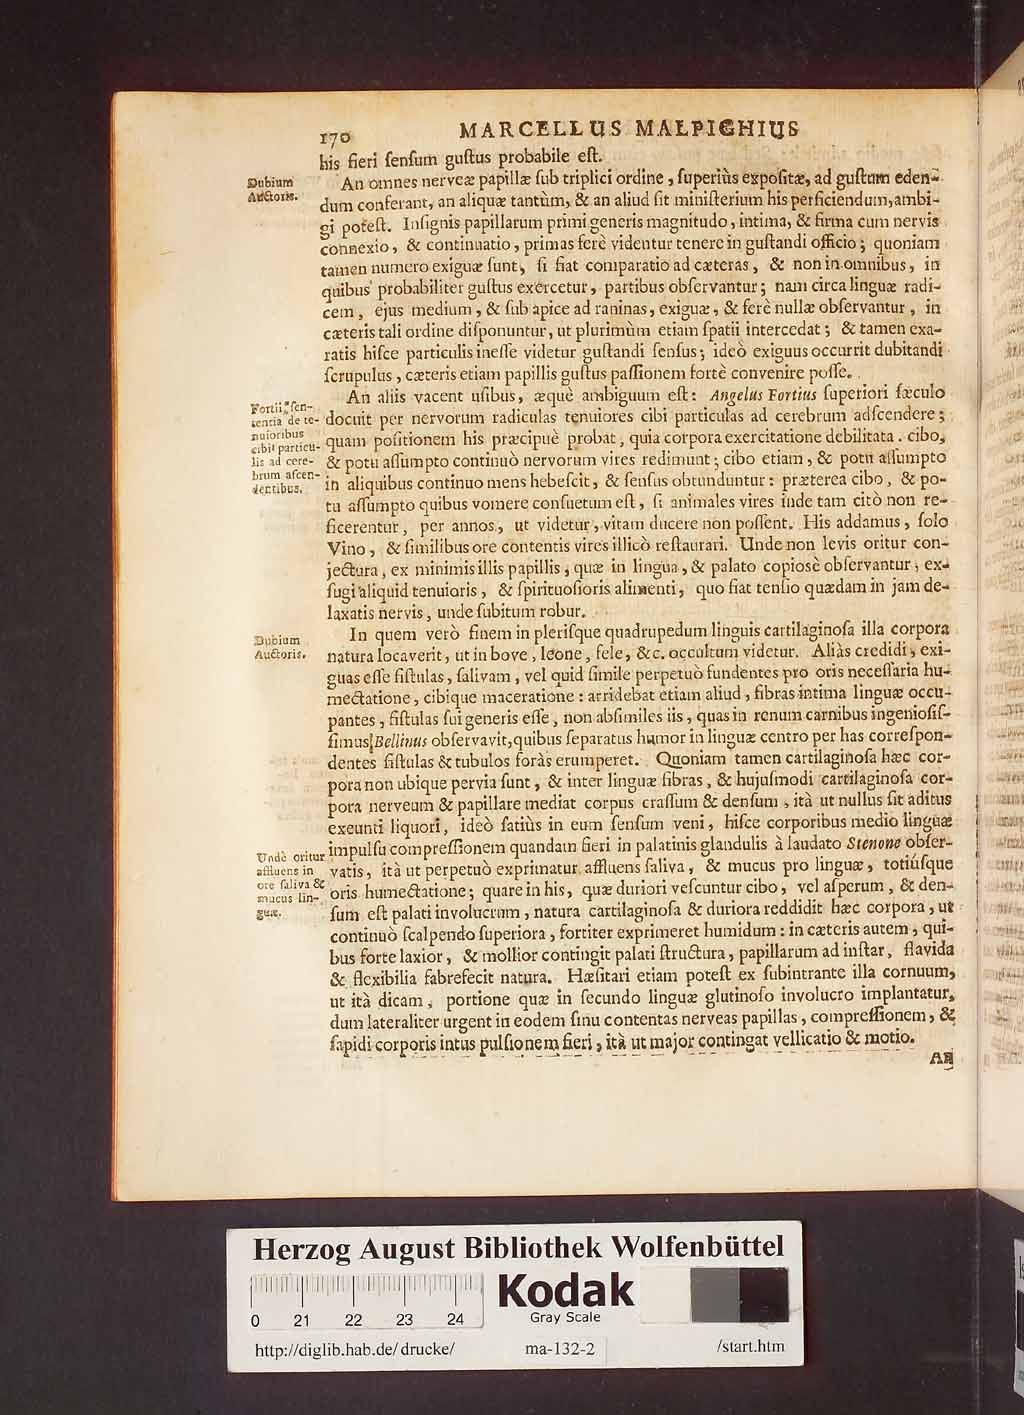 170 MARCELLUS MALPIGHIUS
his fieri ſenſum guſtus probabile eſt.
Dubium
Auctoris.
An omnes nerveæ papillæ ſub triplici ordine, ſuperiùs expoſitæ, ad guſtum eden-
dum conferant, an aliquæ tantùm, & an aliud ſit miniſterium his perficiendum, ambi-
gi poteſt. Inſignis papillarum primi generis magnitudo, intima, & firma cum nervis
connexio, & continuatio, primas ferè videntur tenere in guſtandi officio; quoniam
tamen numero exiguæ ſunt, ſi fiat comparatio ad cæteras, & non in omnibus, in
quibus probabiliter guſtus exercetur, partibus obſervantur; nam circa linguæ radi-
cem, ejus medium, & ſub apice ad raninas, exiguæ, & ferè nullæ obſervantur, in
cæteris tali ordine diſponuntur, ut plurimùm etiam ſpatii intercedat; & tamen exa-
ratis hiſce particulis ineſſe videtur guſtandi ſenſus; ideò exiguus occurrit dubitandi
ſcrupulus, cæteris etiam papillis guſtus paſſionem fortè convenire poſſe.
Fortii ſen-
tentia de te-
nuioribus
cibi particu-
lis ad cere-
brum aſcen-
dentibus.
An aliis vacent uſibus, æquè ambiguum eſt: Angelus Fortius ſuperiori ſæculo
docuit per nervorum radiculas tenuiores cibi particulas ad cerebrum adſcendere;
quam poſitionem his præcipuè probat, quia corpora exercitatione debilitata. cibo,
& potu aſſumpto continuò nervorum vires redimunt; cibo etiam, & potu aſſumpto
in aliquibus continuo mens hebeſcit, & ſenſus obtunduntur: præterea cibo, & po-
tu aſſumpto quibus vomere conſuetum eſt, ſi animales vires inde tam citò non re-
ficerentur, per annos, ut videtur, vitam ducere non poſſent. His addamus, ſolo
Vino, & ſimilibus ore contentis vires illicò reſtaurari. Unde non levis oritur con-
jectura, ex minimis illis papillis, quæ in lingua, & palato copiosè obſervantur, ex-
fugi aliquid tenuioris, & ſpirituoſioris alimenti, quo fiat tenſio quædam in jam de-
laxatis nervis, unde ſubitum robur.
Dubium
Auctoris.
In quem verò finem in pleriſque quadrupedum linguis cartilaginoſa illa corpora
natura locaverit, ut in bove, leone, fele, &c. occultum videtur. Aliàs credidi, exi-
guas eſſe fiſtulas, ſalivam, vel quid ſimile perpetuò fundentes pro oris neceſſaria hu-
mectatione, cibique maceratione: arridebat etiam aliud, fibras intima linguæ occu-
pantes, fiſtulas ſui generis eſſe, non abſimiles iis, quas in renum carnibus ingenioſiſ-
ſimus Bellinus obſervavit, quibus ſeparatus humor in linguæ centro per has correſpon-
dentes fiſtulas & tubulos foràs erumperet. Quoniam tamen cartilaginoſa hæc cor-
pora non ubique pervia ſunt, & inter linguæ fibras, & hujuſmodi cartilaginoſa cor-
pora nerveum & papillare mediat corpus craſſum & denſum, ità ut nullus ſit aditus
exeunti liquori, ideò ſatiùs in eum ſenſum veni, hiſce corporibus medio linguæ
Unde oritur
affluens in
ore ſaliva &
mucus lin-
guæ.
impulſu compreſſionem quandam fieri in palatinis glandulis à laudato Stenone obſer-
vatis, ità ut perpetuò exprimatur affluens ſaliva, & mucus pro linguæ, totiúſque
oris humectatione; quare in his, quæ duriori veſcuntur cibo, vel aſperum, & den-
ſum eſt palati involucrum, natura cartilaginoſa & duriora reddidit hæc corpora, ut
continuò ſcalpendo ſuperiora, fortiter exprimeret humidum: in cæteris autem, qui-
bus forte laxior, & mollior contingit palati ſtructura, papillarum ad inſtar, flavida
& flexibilia fabrefecit natura. Hæſitari etiam poteſt ex ſubintrante illa cornuum,
ut ità dicam, portione quæ in ſecundo linguæ glutinoſo involucro implantatur,
dum lateraliter urgent in eodem ſinu contentas nerveas papillas, compreſſionem, &
ſapidi corporis intus pulſionem fieri, ità ut major contingat vellicatio & motio.
An
Herzog August Bibliothek Wolfenbüttel
0 21 22 23 24
Kodak
Gray Scale
http://diglib.hab.de/drucke/ ma-132-2 /start.htm